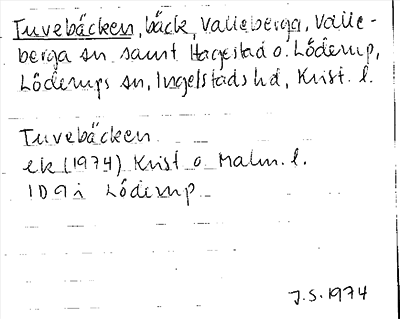 Tuvebäcken, bäck, Valleberga, Valle-
berga sn samt Hagestad o. Löderup,
Löderups sn, Ingelstads hd, Krist. l.
Tuvebäcken
ek (1974) Krist o Malm. l.
1D9i Löderup
J.S. 1974